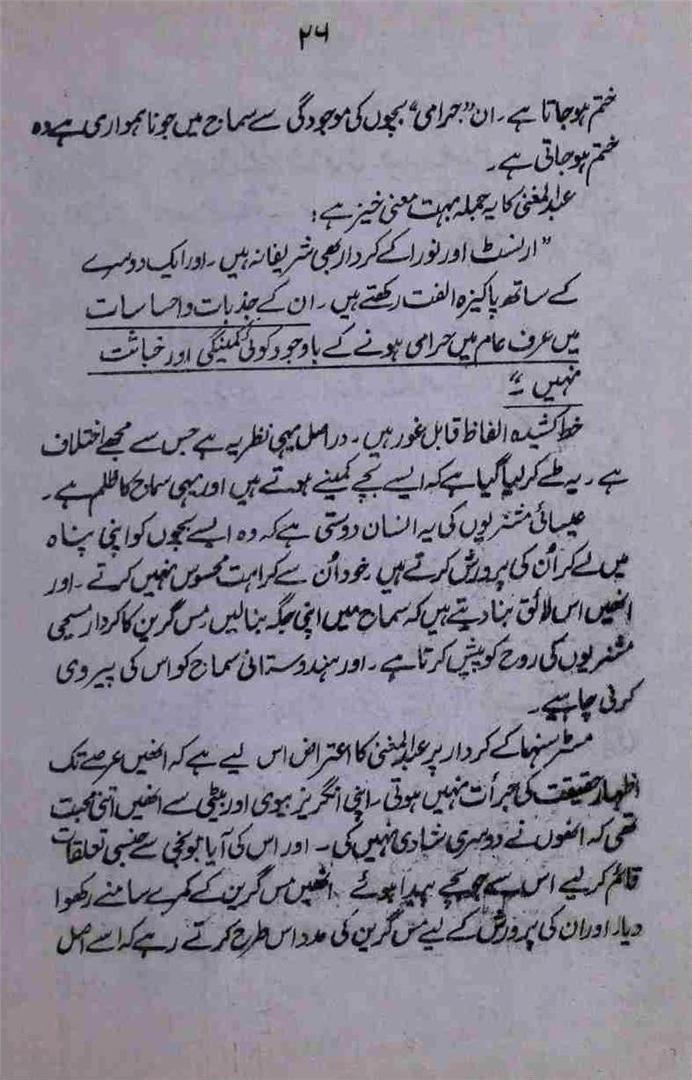 ۲۶
ختم ہوجاتا ہے۔ ان "حرامی" بچوں کی موجودگی سے سماج میں جو ناہمواری ہے وہ
ختم ہوجاتی ہے۔
عبدالمغنی کا یہ جملہ بہت معنی خیز ہے:
"ارنسٹ اور نورا کے کردار بھی شریفانہ ہیں۔ اور ایک دوسرے
کے ساتھ پاکیزہ الفت رکھتے ہیں۔ ان کے جذبات و احساسات
میں عرف عام میں حرامی ہونے کے باوجود کوئی کمینگی اور خباثت
نہیں۔"
خط کشیدہ الفاظ قابل غور ہیں۔ دراصل یہی نظریہ ہے جس سے مجھے اختلاف
ہے۔ یہ طے کر لیا گیا ہے کہ ایسے بچے کمینے ہوتے ہیں اور یہی سماج کا ظلم ہے۔
عیسائی مشنریوں کی یہ انسان دوستی ہے کہ وہ ایسے بچوں کو اپنی پناہ
میں لے کر اُن کی پرورش کرتے ہیں۔ خود اُن سے کراہت محسوس نہیں کرتے۔ اور
انھیں اس لائق بنا دیتے ہیں کہ سماج میں اپنی جگہ بنالیں مس گرین کا کردار مسیحی
مشنریوں کی روح کو پیش کرتا ہے۔ اور ہندوستانی سماج کو اس کی پیروی
کرنی چاہیے۔
مسٹر سنہا کے کردار پر عبدالمغنی کا اعتراض اس لیے ہے کہ انھیں عرصے تک
اظہار حقیقت کی جرأت نہیں ہوتی۔ اپنی انگریز بیوی اور بیٹی سے انھیں اتنی محبت
تھی کہ انھوں نے دوسری شادی نہیں کی۔ اور اس کی آیا جو تھی سے جنسی تعلقات
قائم کر لیے اس سے جو بچے پیدا ہوئے انھیں مس گرین کے کمرے سامنے رکھوا
دیا۔ اور ان کی پرورش کے لیے مس گرین کی مدد اس طرح کرتے رہے کہ اسے اصل